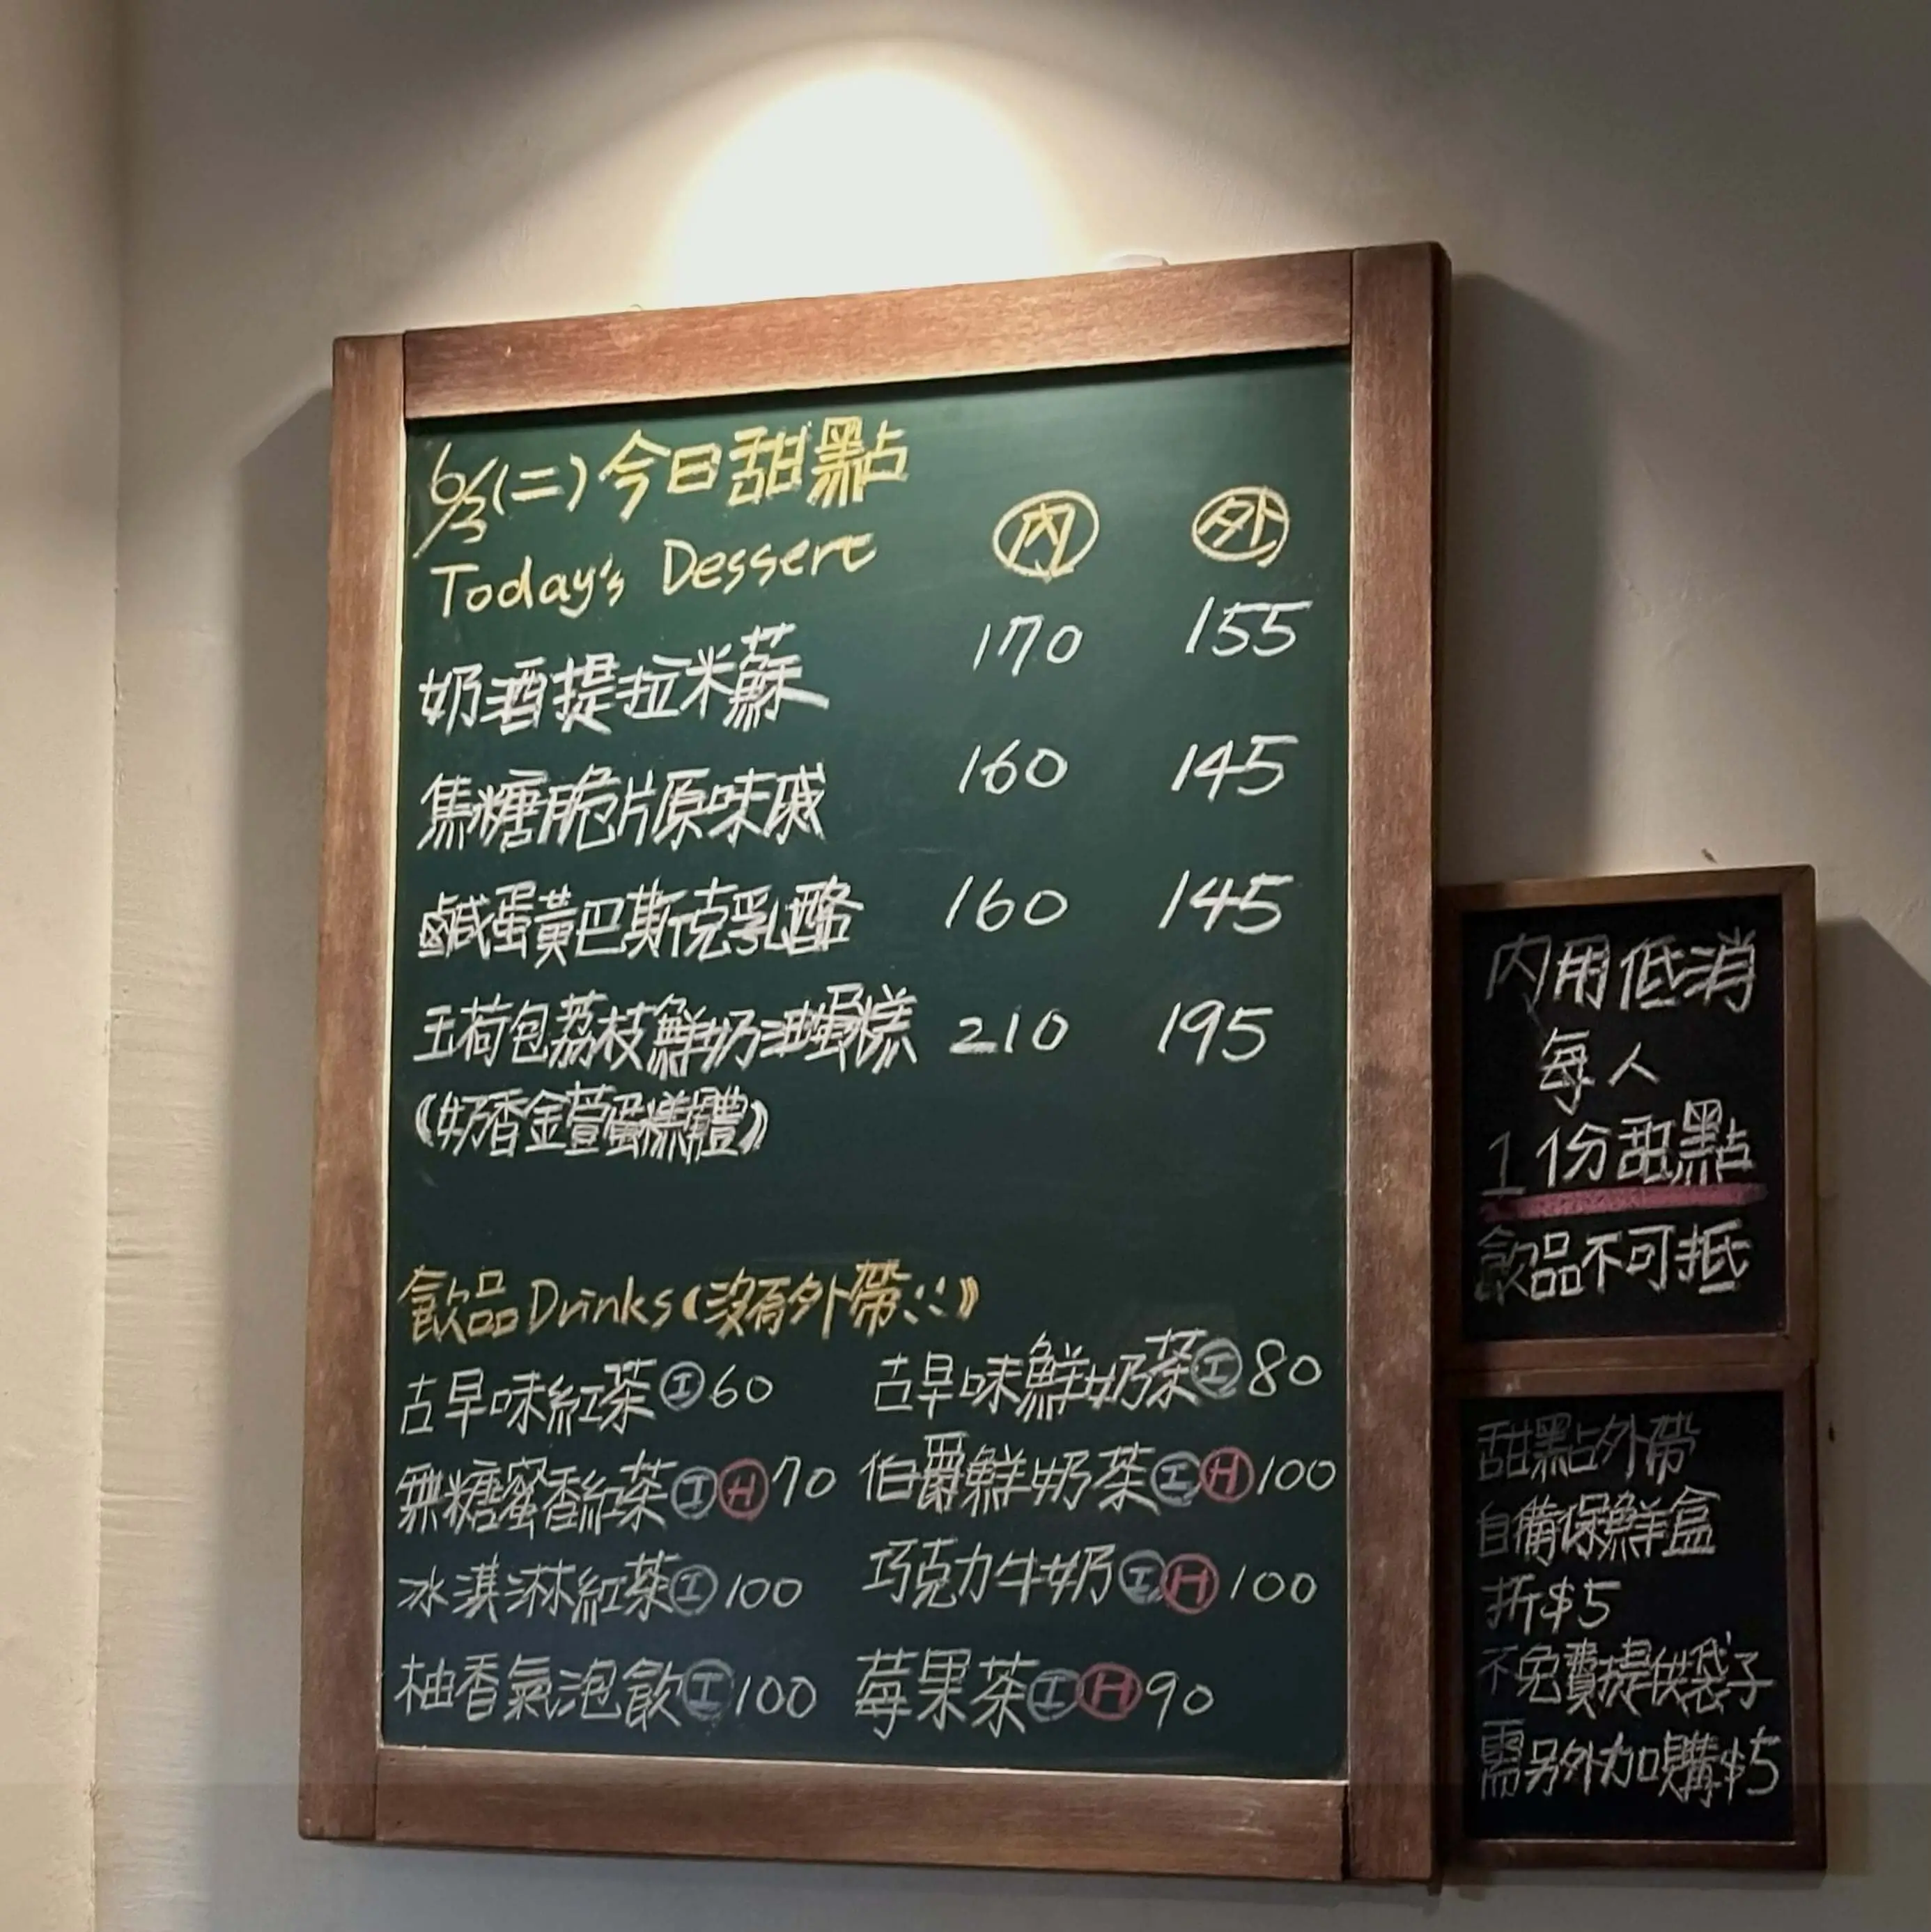 6/3(二)今日甜點
Today's Dessert 內 外
奶酒提拉米蘇 170 155
焦糖脆片原味戚 160 145
鹹蛋黃巴斯克乳酪 160 145
玉荷包荔枝鮮奶油蛋糕 210 195
《奶香金萱蛋糕體》
飲品Drinks《沒有外帶:(》
古早味紅茶 I 60 古早味鮮奶茶 I 80
無糖蜜香紅茶 I H 70 伯爵鮮奶茶 I H 100
冰淇淋紅茶 I 100 巧克力牛奶 I H 100
柚香氣泡飲 I 100 莓果茶 I H 90
內用低消
每人
1份甜點
飲品不可抵
甜點外帶
自備保鮮盒
折$5
不免費提供袋子
需另外加購$5